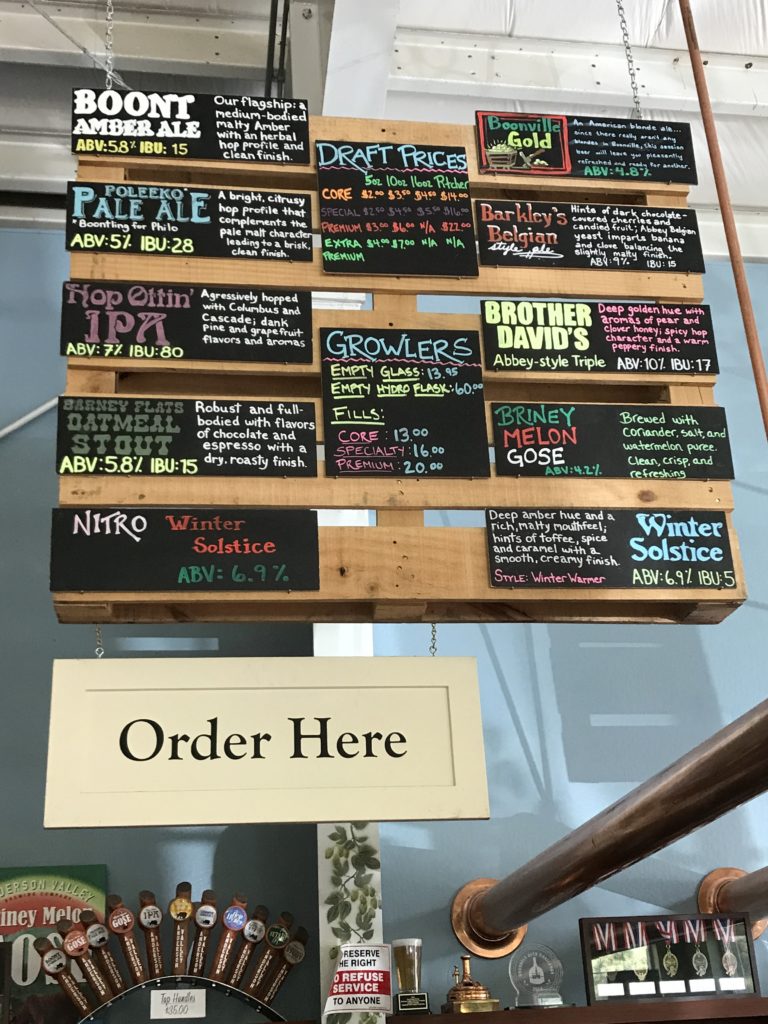 BOONT
AMBER ALE
ABV: 5.8% IBU: 15
Our flagship: a
medium-bodied
malty Amber
with an herbal
hop profile and
clean finish.
POLEEKO*
PALE ALE
*Boontling for Philo
ABV: 5% IBU: 28
A bright, citrusy
hop profile that
complements the
pale malt character
leading to a brisk,
clean finish.
Hop Ottin'
IPA
ABV: 7% IBU: 80
Agressively hopped
with Columbus and
Cascade; dank
pine and grapefruit
flavors and aromas
BARNEY FLATS
OATMEAL
STOUT
ABV: 5.8% IBU: 15
Robust and full-
bodied with flavors
of chocolate and
espresso with a
dry, roasty finish.
NITRO Winter
Solstice
ABV: 6.9%
DRAFT PRICES
5oz 10oz 16oz Pitcher
CORE $2.00 $3.50 $4.50 $14.00
SPECIAL $2.50 $4.50 $5.50 $16.00
PREMIUM $3.00 $6.00 N/A $22.00
EXTRA $4.00 $7.00 N/A N/A
PREMIUM
GROWLERS
EMPTY GLASS: 13.95
EMPTY HYDRO FLASK: 60.00
FILLS:
CORE: 13.00
SPECIALTY: 16.00
PREMIUM: 20.00
Boonville
Gold
An American blonde ale...
since there really aren't any
blondes in Boonville, this session
beer will leave you pleasantly
refreshed and ready for another.
ABV: 4.8%
Barkley's
Belgian
style ale
Hints of dark chocolate-
covered cherries and
candied fruit; Abbey Belgian
yeast imparts banana
and clove balancing the
slightly malty finish.
ABV: 9% IBU: 15
BROTHER
DAVID'S
Abbey-style Triple
Deep golden hue with
aromas of pear and
clover honey; spicy hop
character and a warm
peppery finish.
ABV: 10% IBU: 17
BRINEY
MELON
GOSE
ABV: 4.2%
Brewed with
Coriander, salt, and
watermelon puree.
Clean, crisp, and
refreshing
Deep amber hue and a
rich, malty mouthfeel;
hints of toffee, spice
and caramel with a
smooth, creamy finish.
STYLE: Winter Warmer
Winter
Solstice
ABV: 6.9% IBU: 5
Order Here
DERSON VALLEY
iney Melo
GOSE
IPA
Tap Handles
$35.00
RESERVE
HE RIGHT
O REFUSE
SERVICE
TO ANYONE